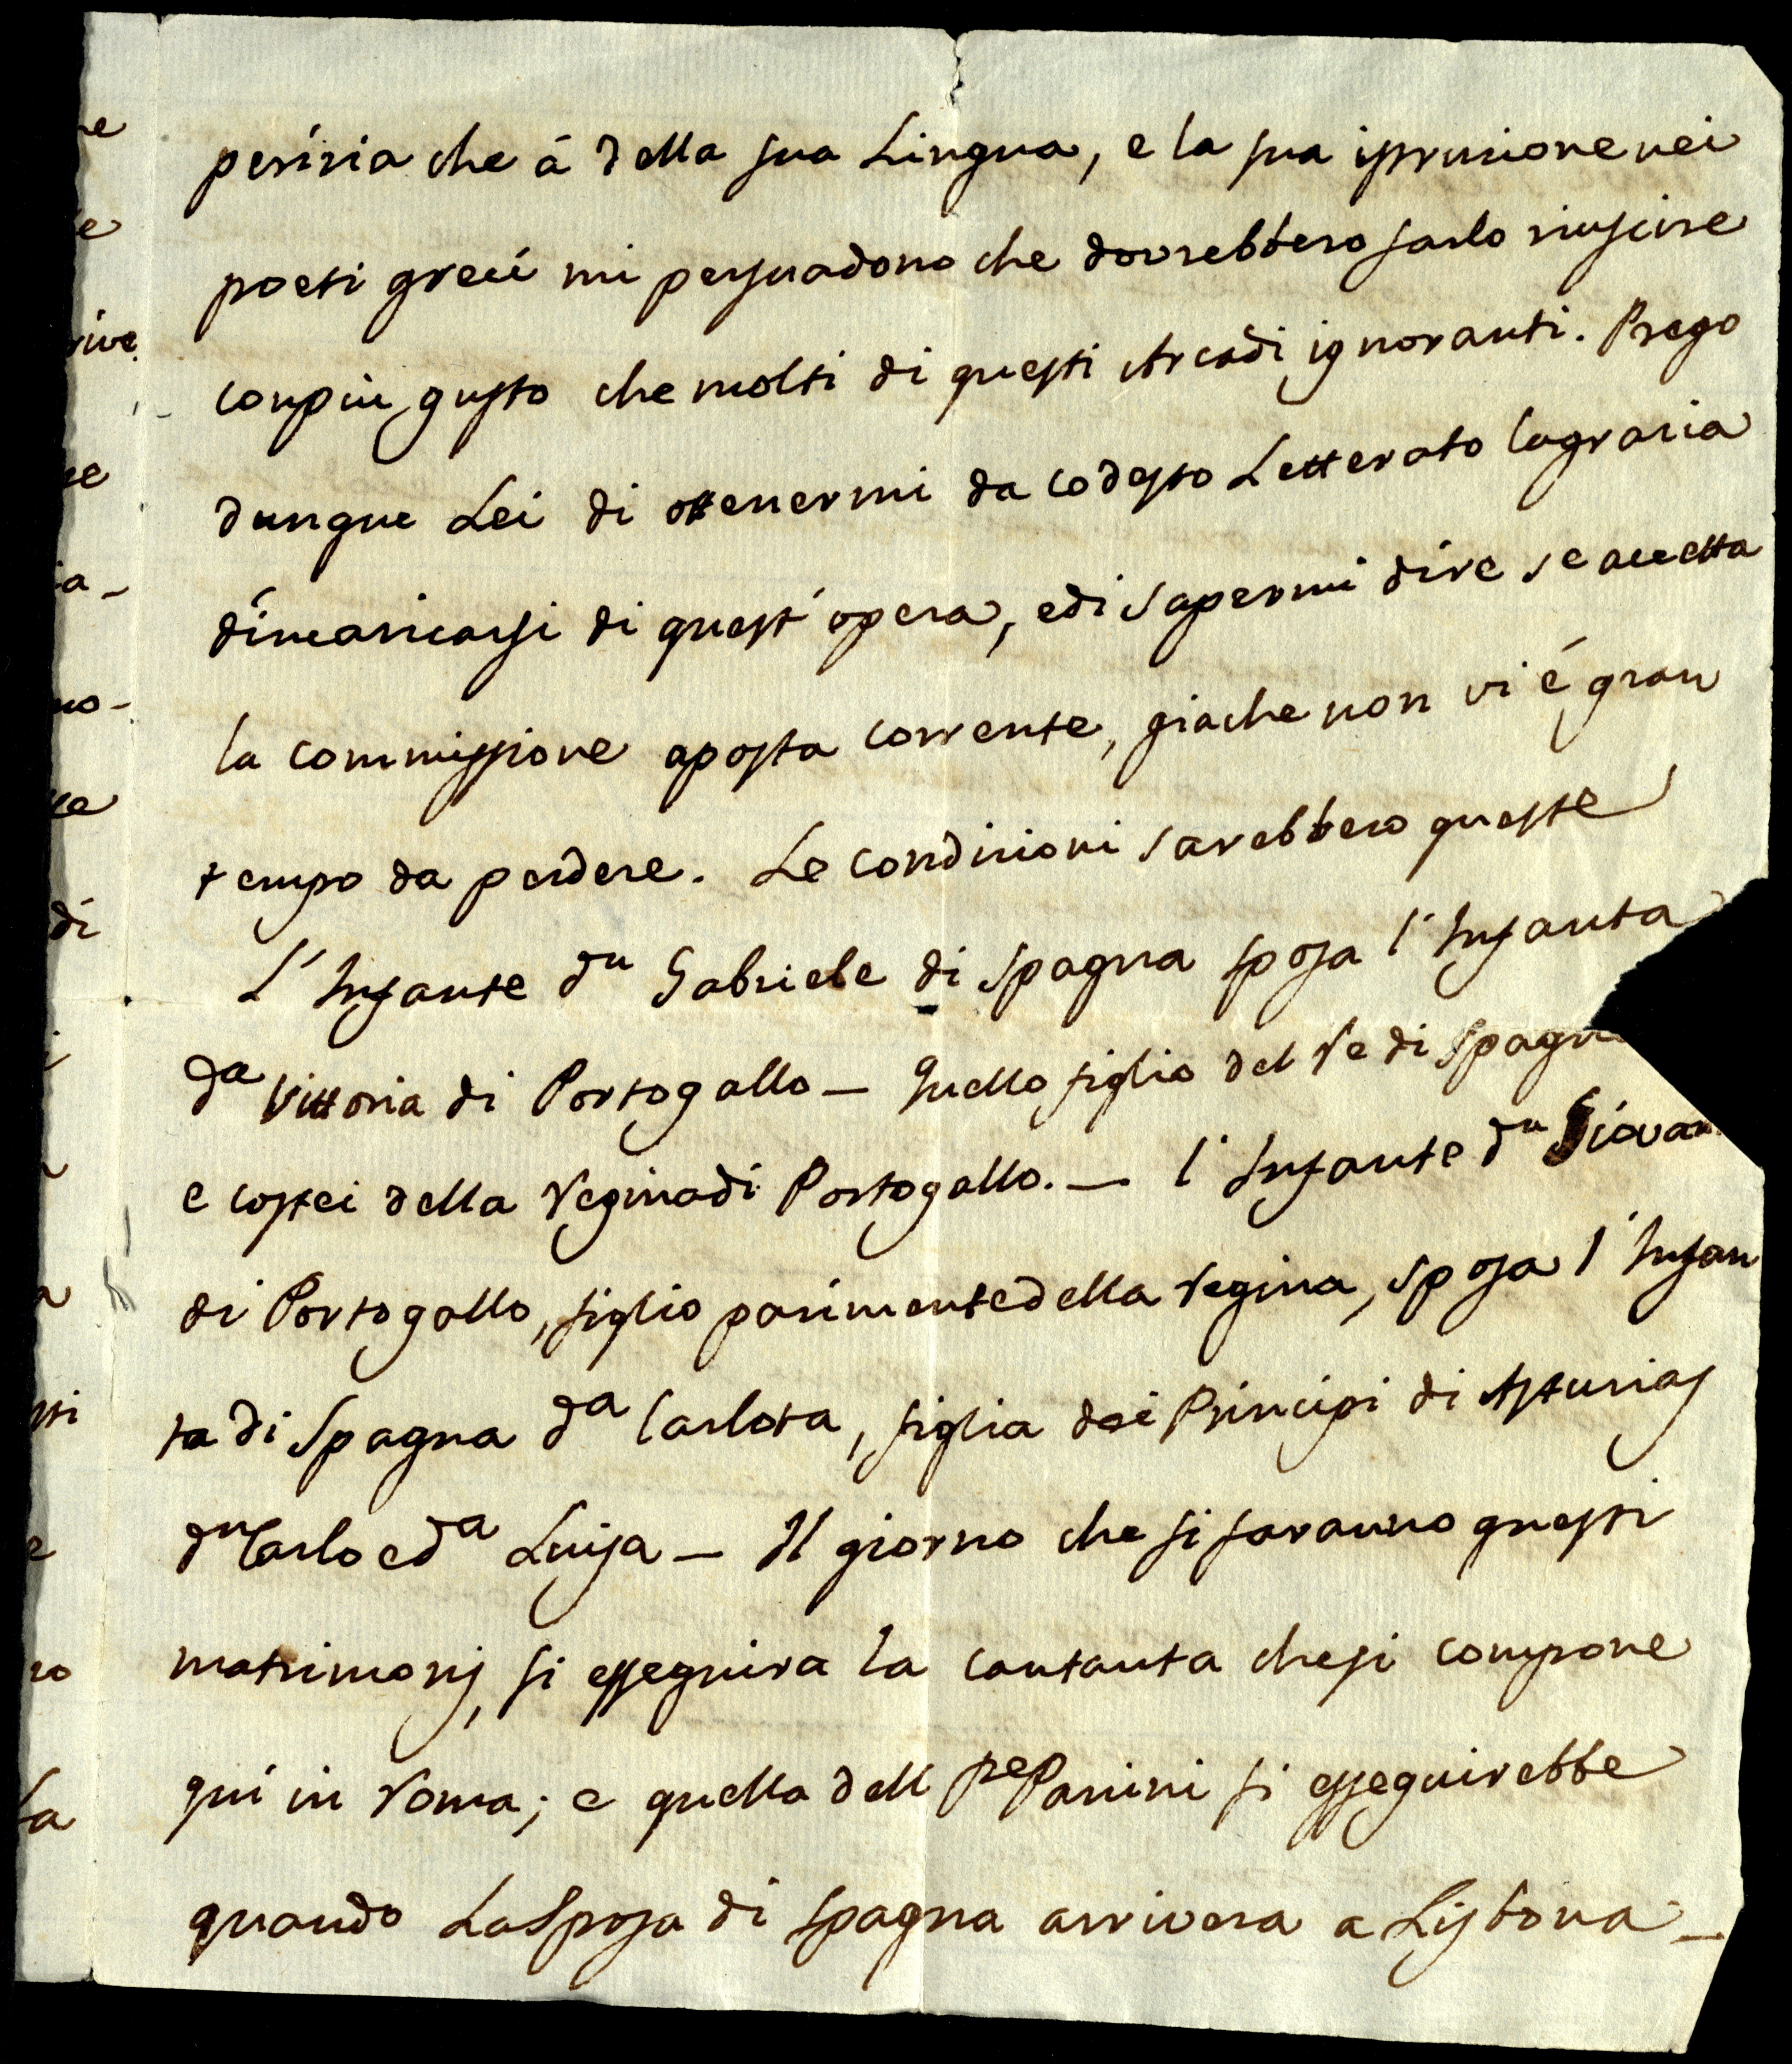 perizia che á della sua Lingua, e la sua istruzione nei
poeti greci mi persuadono che dovrebbero farlo riuscire
con piu gusto che molti di questi Arcadi ignoranti. Prego
dunque Lei di ottenermi da codesto Letterato la grazia
d'incaricarsi di quest'opera, e di sapermi dire se accetta
la commissione a posta corrente, giache non vi é gran
tempo da perdere. Le condizioni sarebbero queste
L'Infante Dn Gabriele di Spagna sposa l'Infanta
Da Vittoria di Portogallo — Quello figlio del Re di Spagna
e costei della Regina di Portogallo. — l'Infante Dn Giovan
di Portogallo, figlio parimente della Regina, sposa l'Infan
ta di Spagna Da Carlota, figlia dei Principi di Asturias
Dn Carlo e Da Luisa — Il giorno che si faranno questi
matrimonj, si esseguira la cantanta che si compone
qui in Roma; e quella dell Pe Panini si esseguirebbe
quando La Sposa di Spagna arrivera a Lisbona —